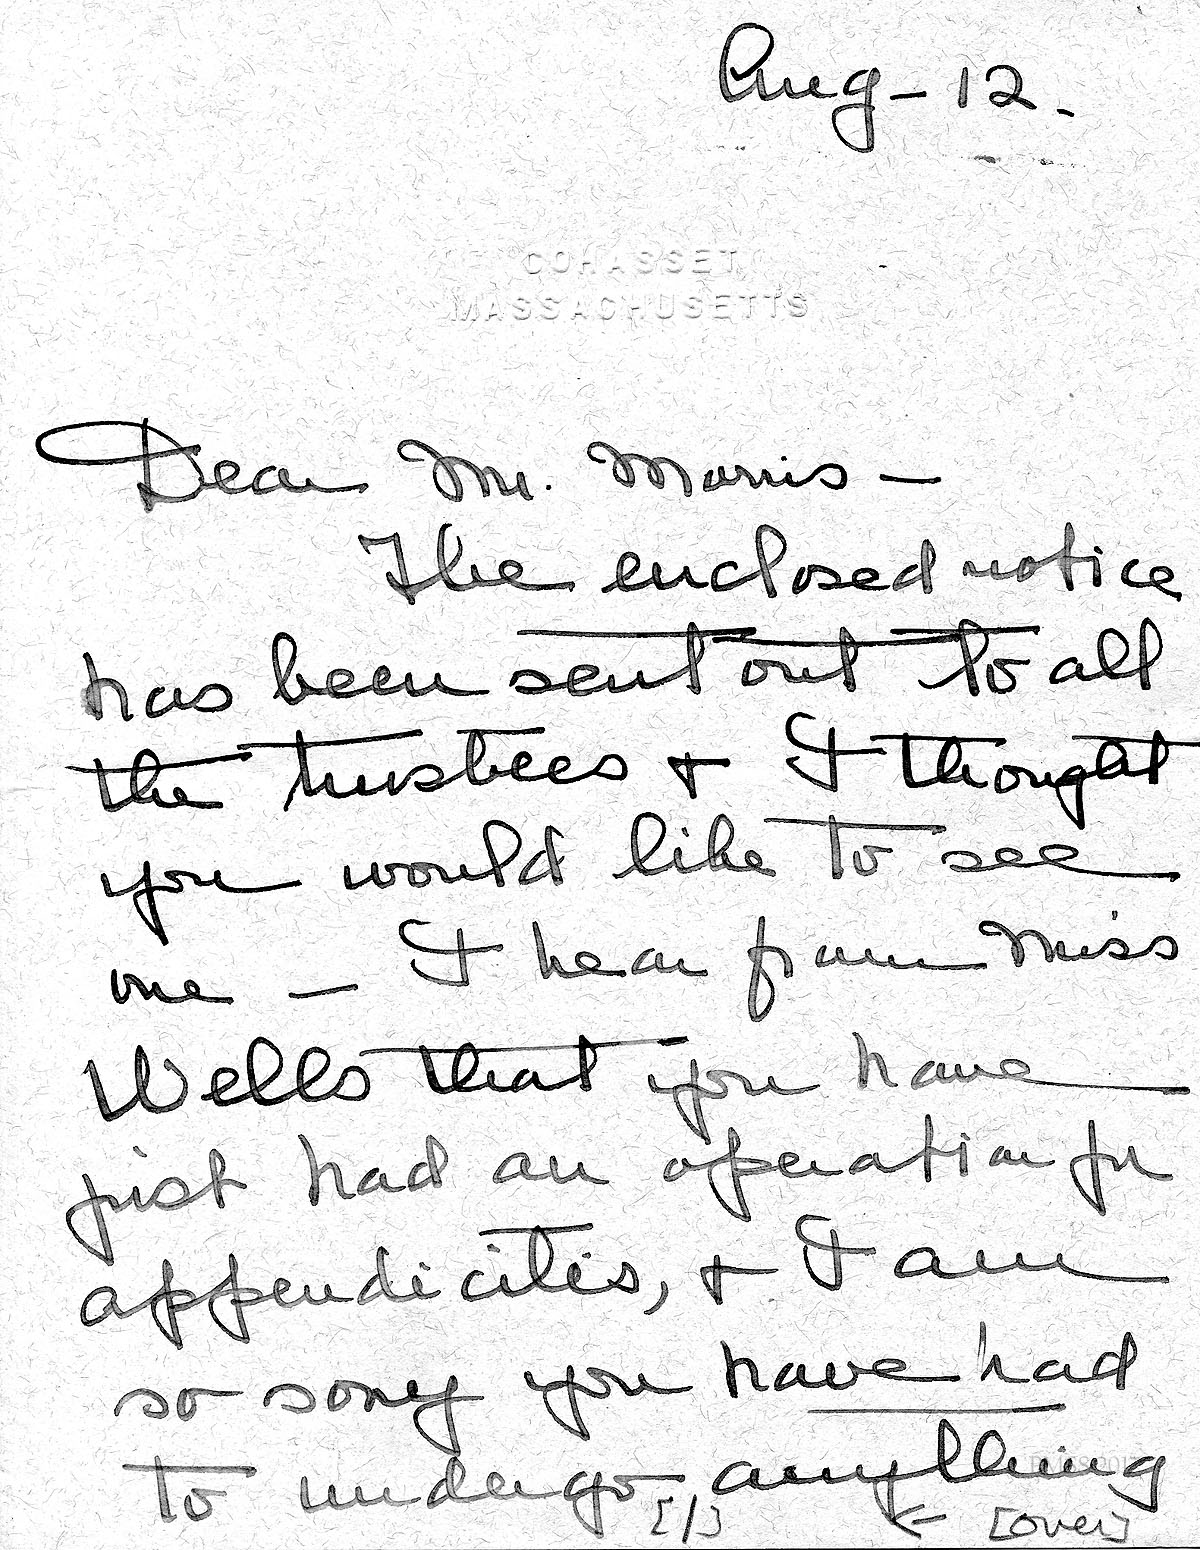 Aug - 12.
COHASSET
MASSACHUSETTS
Dear Mr. Morris —
The enclosed notice
has been sent out to all
the trustees + I thought
you would like to see
one — I hear from Miss
Wells that you have
just had an operation for
appendicitis, + I am
so sorry you have had
to undergo anything
[1] ← [over]